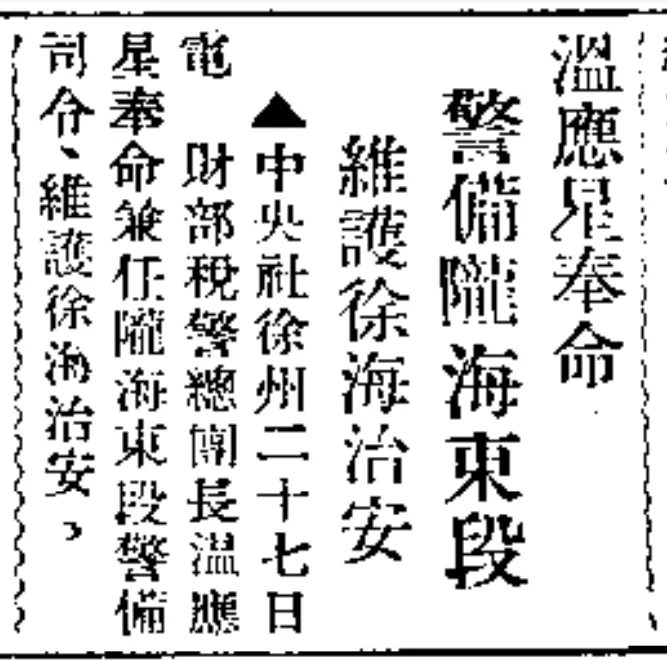 溫應星奉命
警備隴海東段
維護徐海治安
▲中央社徐州二十七日
電　財部稅警總團長溫應
星奉命兼任隴海東段警備
司令、維護徐海治安，